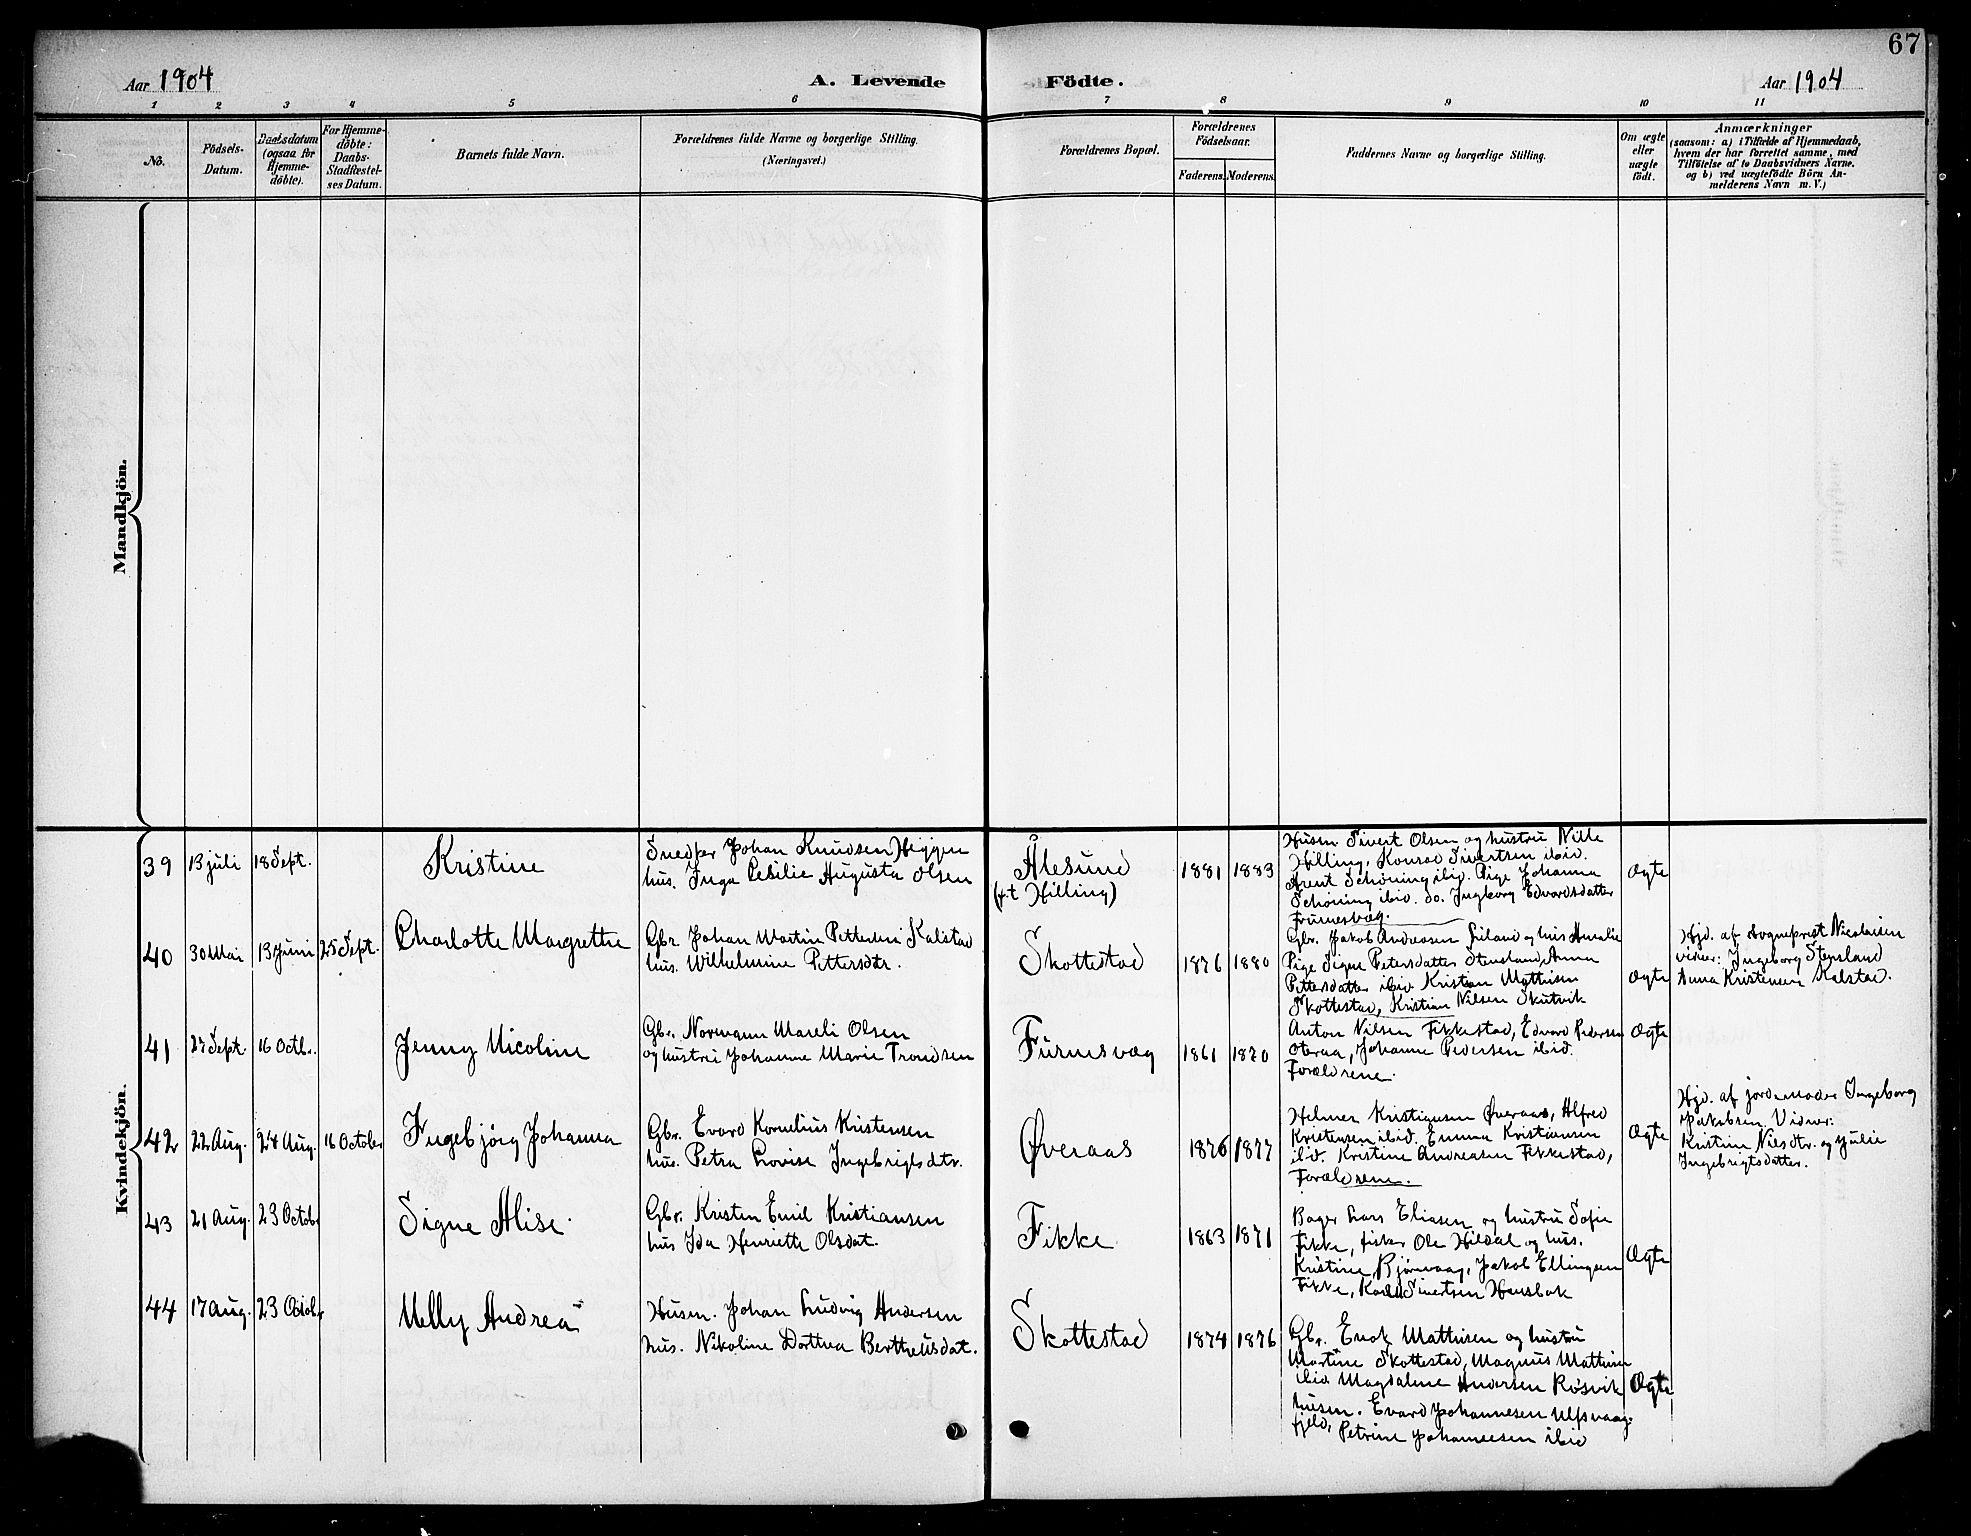 67
Aar 1904
A. Levende
Födte.
Aar 1904
1 2 3 4 5 6 7 8 9 10 11
No.
Födsels-
Datum.
Daabsdatum
(ogsaa for
Hjemme-
døbte).
For Hjemme-
døbte:
Daabs-
Stadfæstel-
ses Datum.
Barnets fulde Navn.
Forældrenes fulde Navne og borgerlige Stilling.
(Næringsvei.)
Forældrenes Bopæl.
Forældrenes
Födselsaar.
Faderens. Moderens.
Faddernes Navne og borgerlige Stilling.
Om ægte
eller
uægte
födt.
Anmærkninger
(saasom: a) i Tilfælde af Hjemmedaab,
hvem der har forrettet samme, med
Tilföielse af to Daabsvidners Navne.
og b) ved uægtefödte Börn An-
melderens Navn m. V.)
Mandkjön.
Kvindekjön.
39 13 juli 18 Sept.
Kristine
Snedker Johan Knudsen Heggen
hus. Inga Cecilie Augusta Olsen
Ålesund
(f.t Hilling)
1881 1883
Husm Sivert Olsen og hustru Nille
Hilling, Konrad Sivertsen ibid.
Arent Schøning ibid. Pige Johanna
Schøning ibid. do. Ingborg Edvardsdatter
Furnesvæg.
Ægte
40 30 Mai 13 Juni 25 Sept.
Charlotte Margrethe
Gbr Johan Martin Pettersen Kalstad
hus. Wilhelmine Pettersdtr.
Skottestad
1876 1880
Gbr. Jakob Andreassen Liland og hus Amalie
Pige Signe Petersdatter Stensland, Anna
Pettersdatter ibid Kristian Mathisen
Skottestad, Kristian Nilsen Skutvik
Ægte
Hjd. af Sogneprest Nicolaisen
vidner: Ingeborg Stensland
Anna Kristensen Kalstad.
41 27 Sept. 16 Octb.
Jenny Nicoline
Gbr. Normann Mareli Olsen
og hustru Johanne Marie Trondsen
Furnesvæg
1861 1870
Anton Nilsen Fikkestad, Edvard Pedersen
Oteraa, Johanne Pedersen ibid.
Forældrene.
Ægte
42 22 Aug. 24 Aug. 16 October
Ingebjørg Johanna
Gbr. Evard Kornelius Kristensen
hus. Petra Lovise Ingebrigtsdtr.
Øveraas
1876 1877
Helmer Kristiansen Øveraas, Alfred
Kristensen ibid. Emma Kristiansen
ibid. Kristine Andreasen Fikkestad,
Forældrene.
Ægte
Hjd. af jordemoder Ingeborg
Jakobsen. Vidner:
Kristine Nilsdtr. og Julie
Ingebrigtsdatter.
43 21 Aug. 23 Octobr
Signe Alise.
Gbr. Kristen Emil Kristiansen
hus Ida Henriette Olsdat.
Fikke
1863 1871
Bager Lars Eliasen og hustru Sofie
Fikke, fisker Ole Hildal og hus.
Kristine, Bjørnvaag, Jakob Ellingsen
Fikke, Karl Sivertsen Hensbak
Ægte
44 17 Aug. 23 Octobr
Nelly Andrea
Husm. Johan Ludvig Andersen
hus. Nikoline Dorthea Bertheusdat.
Skottestad
1874 1876
Gbr. Enok Mathisen og hustru
Martine Skottestad, Magnus Mathisen
ibid Magdalene Andersen Røsvik
husm. Evard Johannesen Ulfsvaag-
fjeld, Petrine Johannesen ibid
Ægte